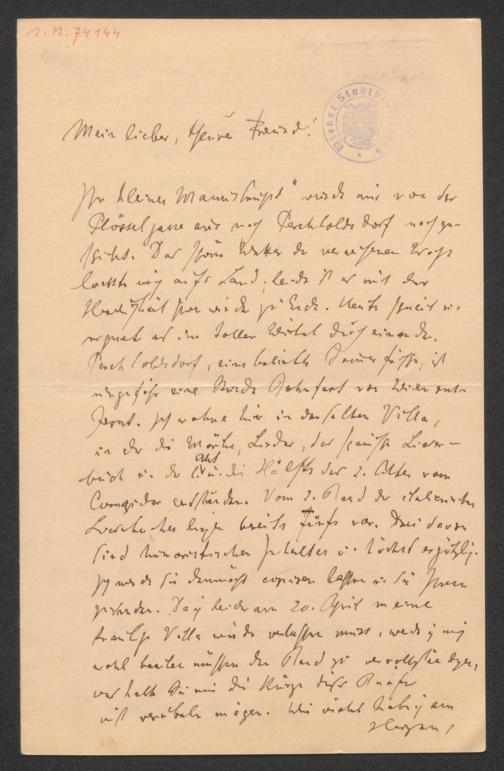 J. N. 74144
Wiener Stadtbi
Mein lieber, theurer Freund!
Ihr kleines Manuscript" wurde mir von der
Plösselgasse aus nach Perchtoldsdorf nachge-
schickt. Das schöne Wetter der vergangenen
lockte mich aufs Land, leider ist es mit der
Herrlichkeit schon wieder zu Ende. Heute schneit u.
regnet es im tollen Wirbel durcheinander.
Perchtoldsdorf, eine beliebte Sommerfrische, ist
ungefähr eine Stunde Bahnfahrt von Wien ent-
fernt. Ich wohne hier in derselben Villa,
in der die Mörike Lieder, das spanische Lieder-
buch u. der I. Akt u. die Hälfte des 2. Aktes vom
Corregidor entstanden. Vom 2. Band der italienischen
Liederbuches liegen bereits fünf vor. Drei davon
sind humoristischen Gehaltes u. höchst ergötzlich.
Ich werde sie demnächst copiren lassen u. sie Ihnen
zusenden. Da ich leider am 20. April meine
Villa wieder verlassen muss, werde ich mich
wohl beeilen müssen den Band zu vervollständigen,
weshalb Sie mir die Kürze dieses Briefes
nicht verübeln mögen. Wie vieles hab ich am
Herzen,